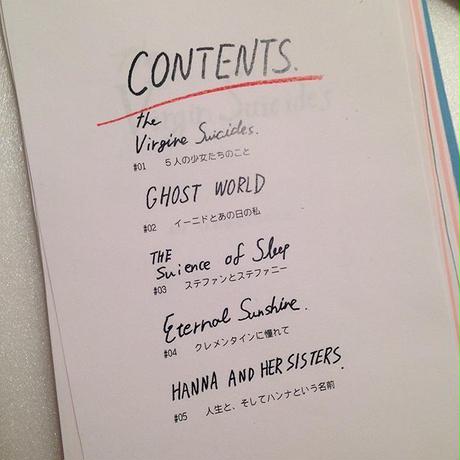 CONTENTS.
the
Virgine Suicides.
#01 5人の少女たちのこと
GHOST WORLD
#02 イーニドとあの日の私
THE
Suience of Sleep
#03 ステファンとステファニー
Eternal Sunshine.
#04 クレメンタインに憧れて
HANNA AND HER SISTERS.
#05 人生と、そしてハンナという名前